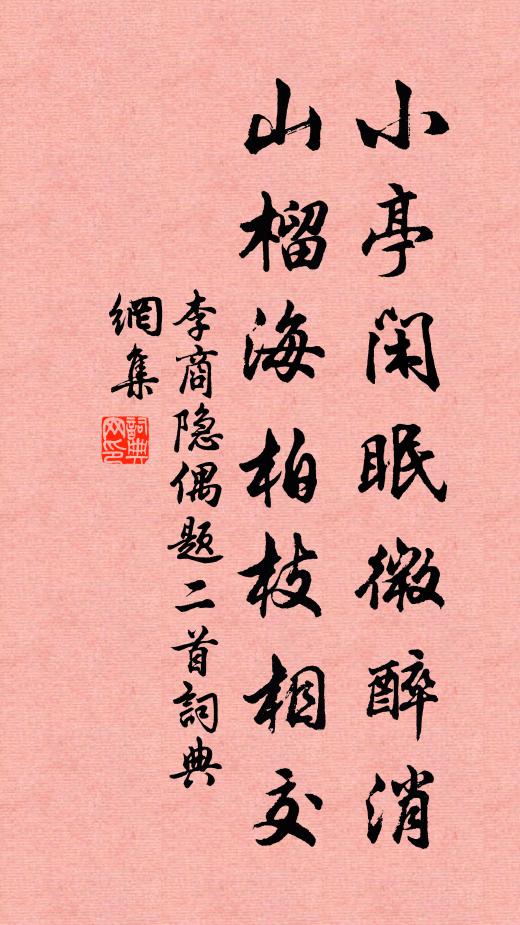 小亭闲眠微醉消
山榴海柏枝相交
李商隐偶题二首詞典
網集
詞典网印